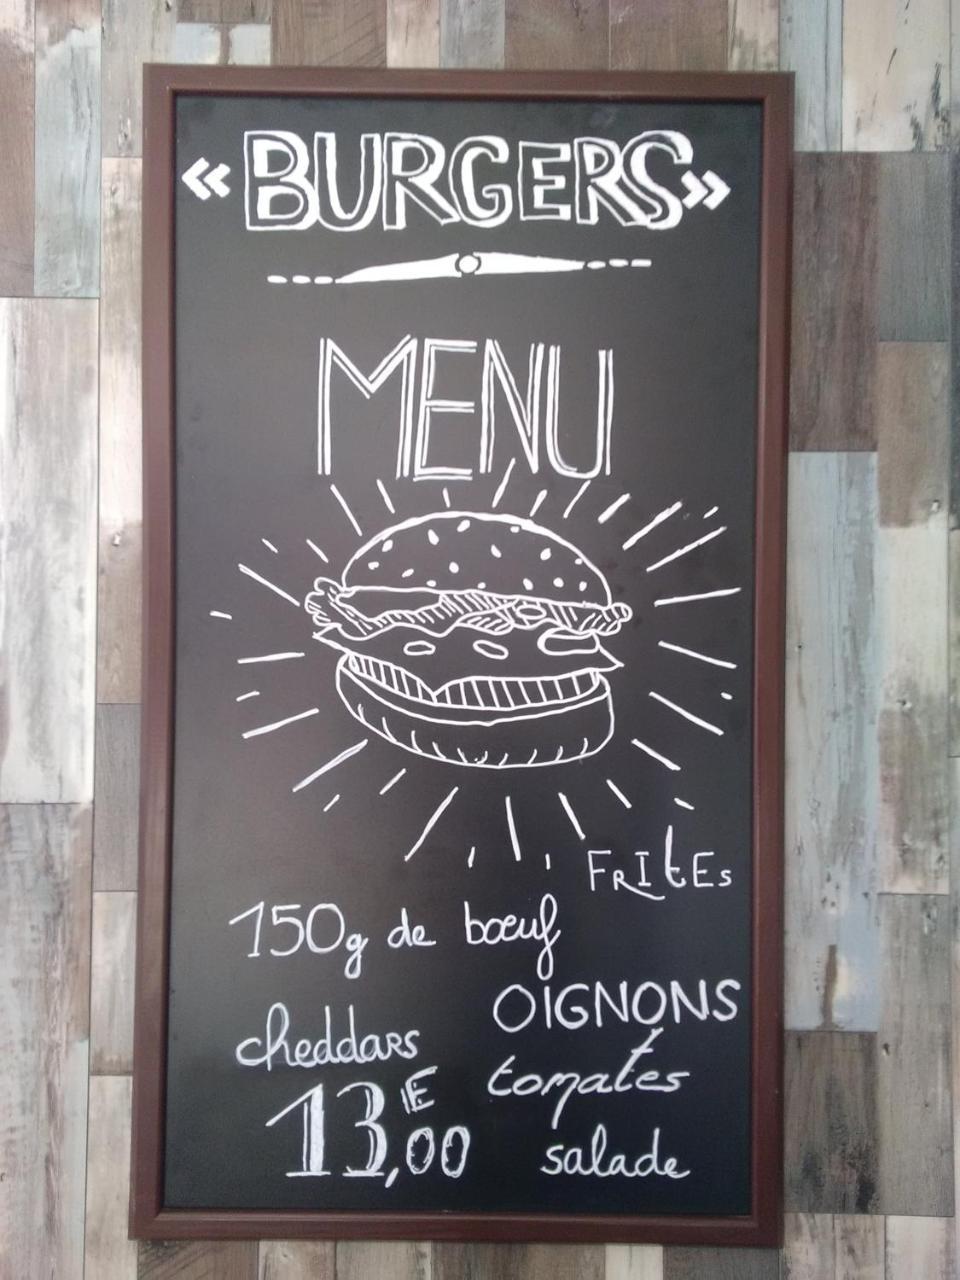 «BURGERS»
MENU
FRItEs
150g de bœuf
OIGNONS
cheddars
tomates
13,00 €
salade